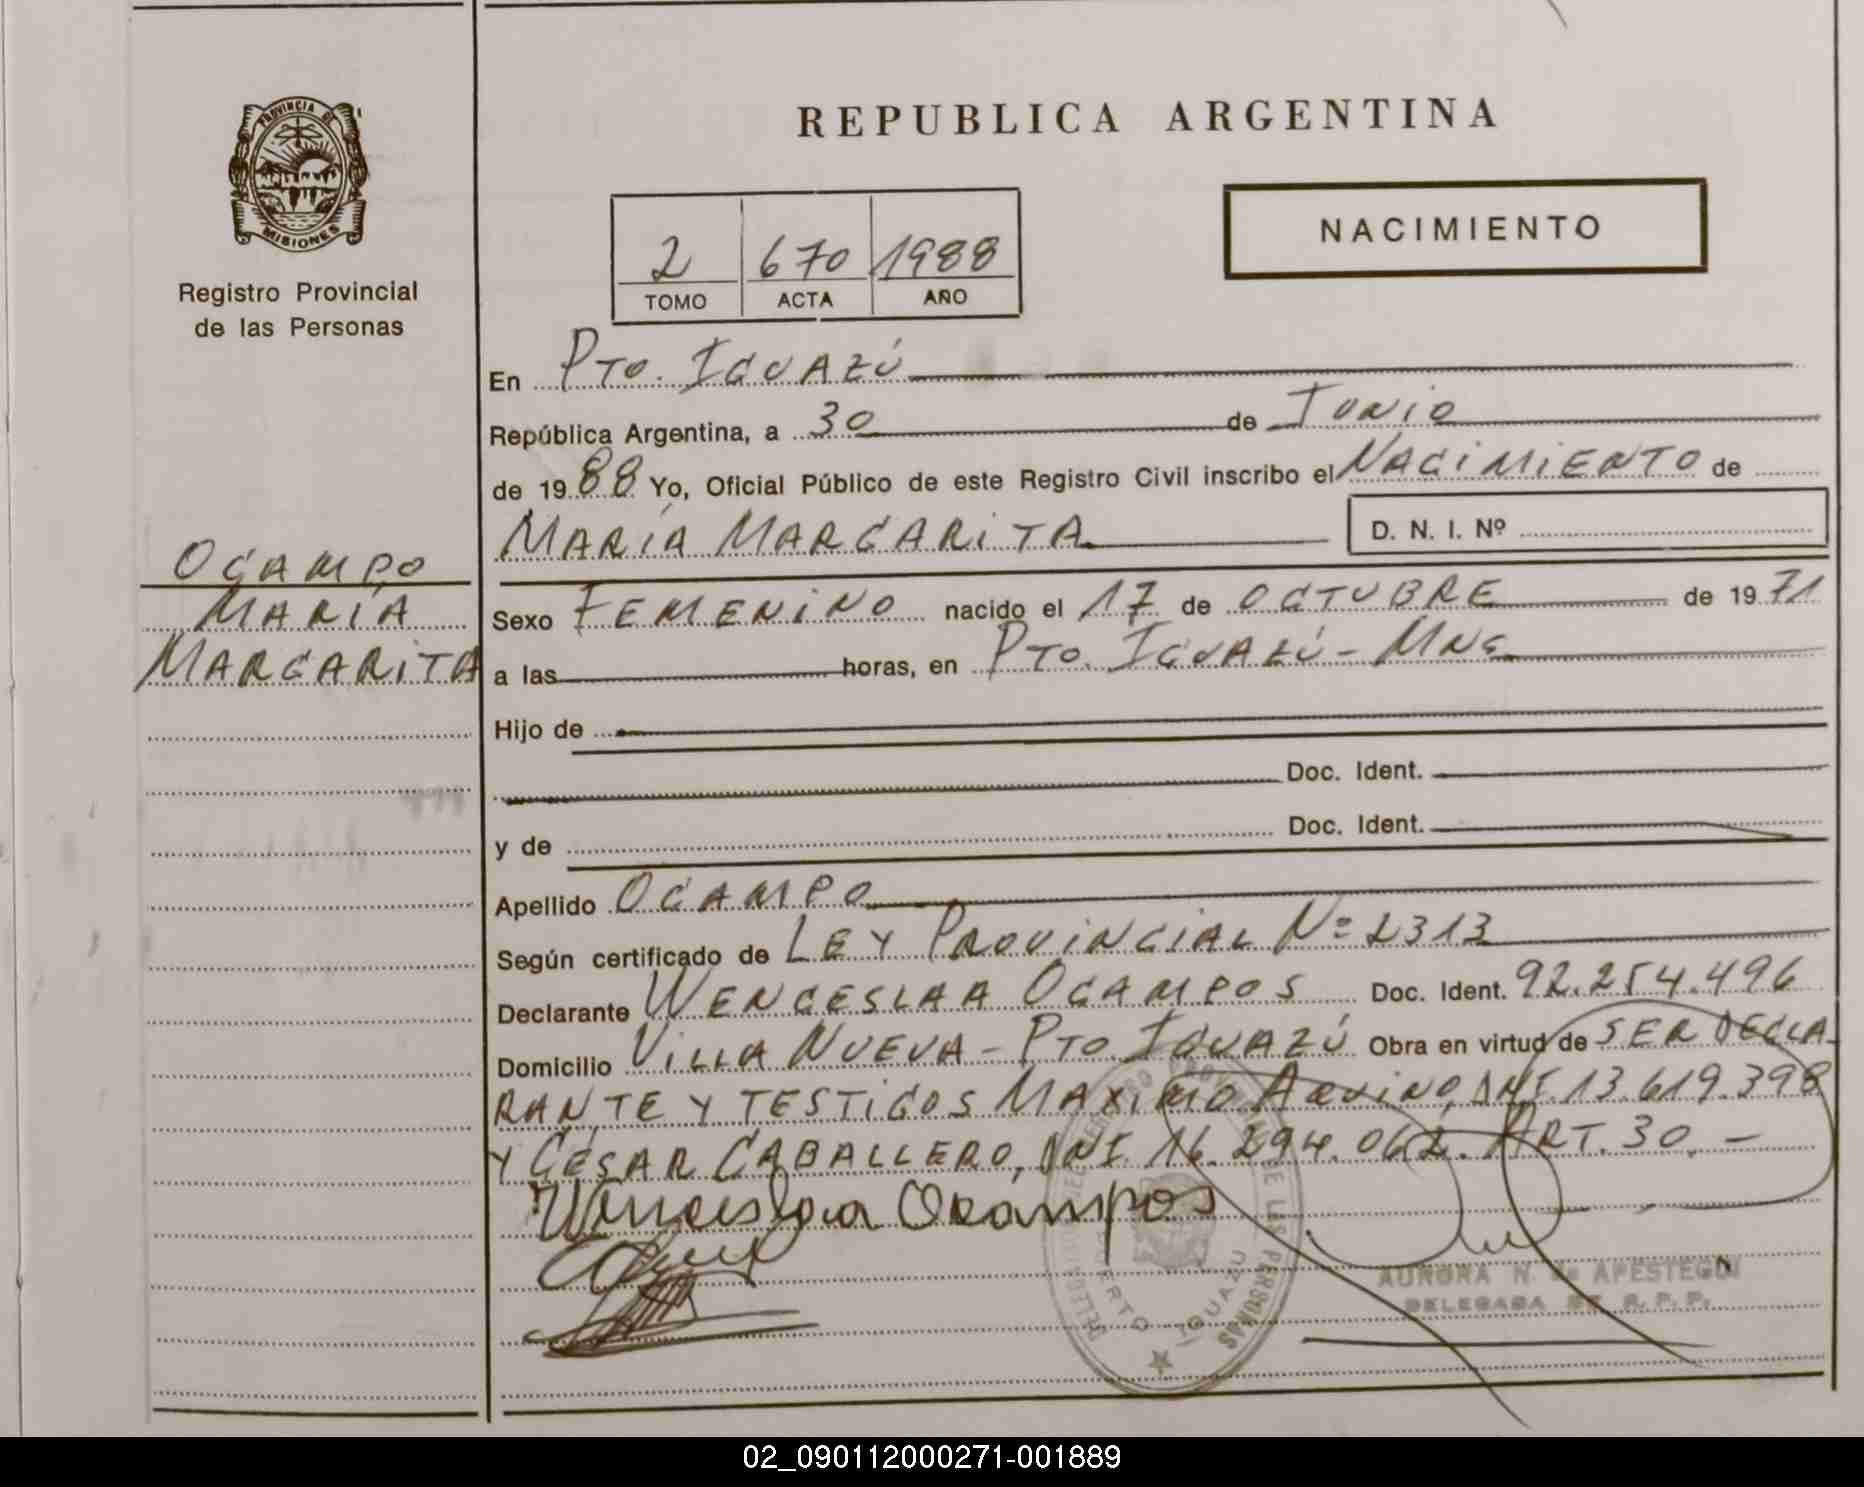 PROVINCIA DE
MISIONES
Registro Provincial
de las Personas
OCAMPO
MARÍA
MARGARITA
REPUBLICA ARGENTINA
2 670 1988
TOMO ACTA AÑO
NACIMIENTO
En PTO. IGUAZÚ
República Argentina, a 30 de JUNIO
de 1988 Yo, Oficial Público de este Registro Civil inscribo el NACIMIENTO de
MARÍA MARGARITA D. N. I. Nº
Sexo FEMENINO nacido el 17 de OCTUBRE de 1971
a las horas, en PTO. IGUAZÚ - MNS
Hijo de
Doc. Ident.
y de Doc. Ident.
Apellido OCAMPO
Según certificado de LEY PROVINCIAL Nº 2313
Declarante WENCESLAA OCAMPOS Doc. Ident. 92.254.496
Domicilio VILLA NUEVA - PTO. IGUAZÚ Obra en virtud de SER DECLA-
RANTE Y TESTIGOS MAXIMO AQUINO, DNI. 13.619.398
Y CÉSAR CABALLERO, DNI. 16.294.062. ART. 30. -
Wenceslaa Ocampos
AURORA N. de APESTEGUI
DELEGADA DE R. P. P.
DE LAS PERSONAS
PUERTO IGUAZU
02_090112000271-001889